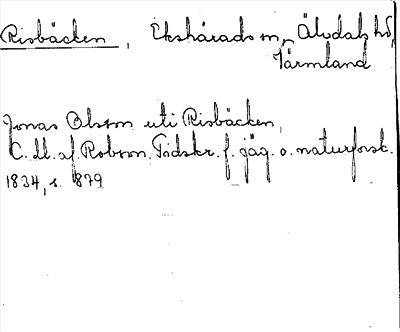 Risbäcken, Ekshärads sn, Älvdals hd,
Värmland
Jonas Olsson uti Risbäcken,
C. U. af. Robson, Tidskr. f. jäg. o. naturforsk.
1834, s. 879